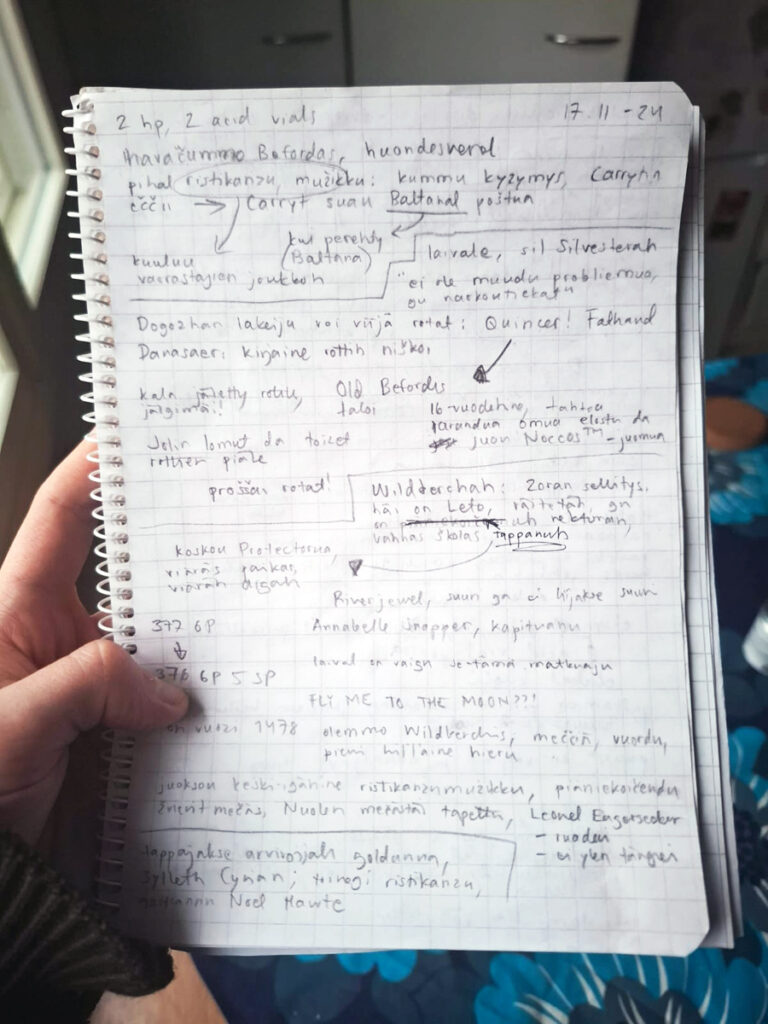 2 hp, 2 acid vials 17.11 -24
havačummo Befordas, huondesverol
pihal ristikanzu, mužikku: kummu kyzymys, Carrytin
eččii → Carryt suau Baltanal poštua
kuuluu
varastajien joukkoh
kul perehty
(Baltana)
laivale, sil Silvesterah
"ei ole muudu probliemua,
gu narkoutiekat"
Dogozhan lakeiju voi virjä rotat: Quincer! Falhand
Danasaer: kirjaine rottih niškoi
kala jätetty rotile,
jälgimäi!
Old Befordis
taloi
16-vuodehine, tahtou
parandua omua elostu da
juou Noccos™-juomua
Jolin lomut da toizet
rottien piäle
proššai rotat!
Wildberchah: Zoran sellitys.
häi on Leto,
on
vahhas školas, tappanuh
koskou Protectorua,
viäräs paikas,
viäräh aigah
Riverjewel, suuri ga ei liijakse suuri
377 GP
Annabelle Snapper, kapituanu
376 GP 5 SP
laival on vaigu seittämä matkuaju
FLY ME TO THE MOON??!
on vuozi 1478
olemmo Wildberchis, meččii, vuordu,
pieni hil'l'aine hieru
juoksou keski-igähine ristikanzumužikku,
mečäs, Nuolen mečästäi tapettu, Leonel
- ruodui
- ei ylen tängiei
tappajakse arvivojah goldunua,
Sylleth Cynan; toinegi ristikanzu,
Noel Hawte